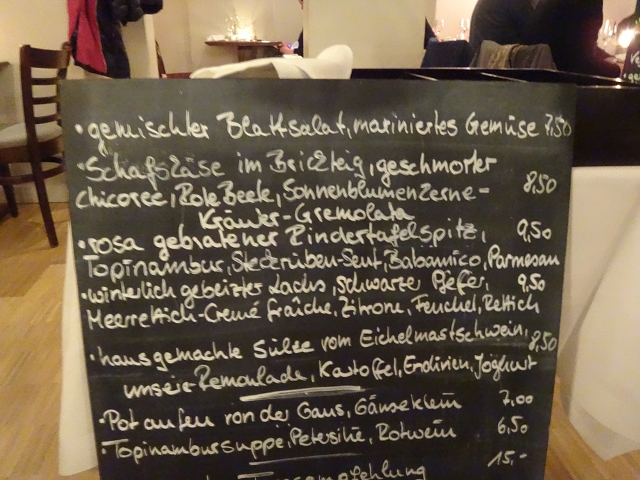 · gemischter Blattsalat, mariniertes Gemüse 7,50
· Schafskäse im Brickteig, geschmorter
chicoree, Rote Beete, Sonnenblumenkerne- 8,50
Kräuter-Gremolata
· rosa gebratener Rindertafelspitz, 9,50
Topinambur, Steckrüben-Senf, Balsamico, Parmesan
· winterlich gebeizter Lachs, schwarzer Pfeffer, 9,50
Meerrettich-Creme fraîche, Zitrone, Fenchel, Rettich
· hausgemachte Sülze vom Eichelmastschwein, 8,50
unsere Remoulade, Kartoffel, Endivien, Joghurt
· Pot au feu von der Gans, Gänseklein 7,00
· Topinambursuppe, Petersilie, Rotwein 6,50
15,-